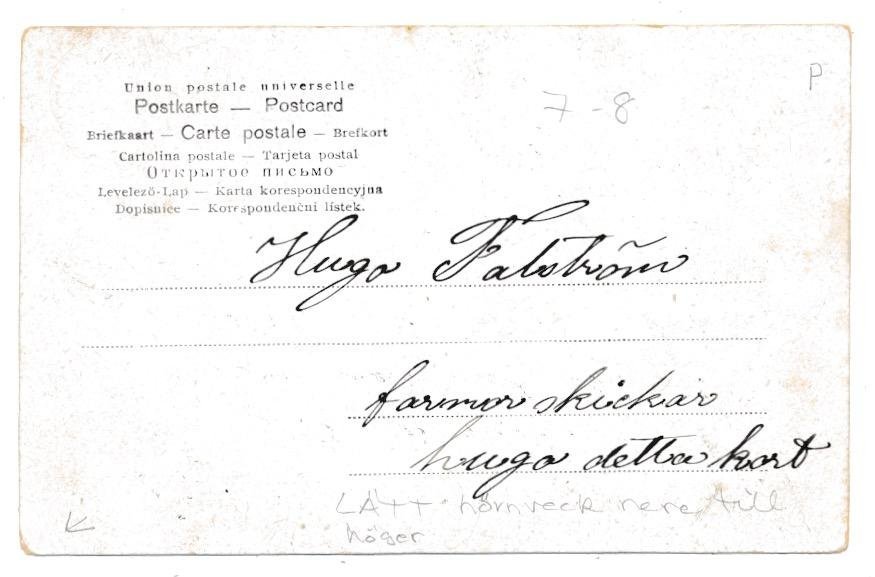 Union postale universelle
Postkarte — Postcard
Briefkaart — Carte postale — Brefkort
Cartolina postale — Tarjeta postal
Открытое письмо
Levelező-Lap — Karta korespondencyjna
Dopisnice — Korespondenční lístek.
7-8
P
Hugo Falström
farmor skickar
hugo detta kort
LÄTT hörnveck nere till
höger